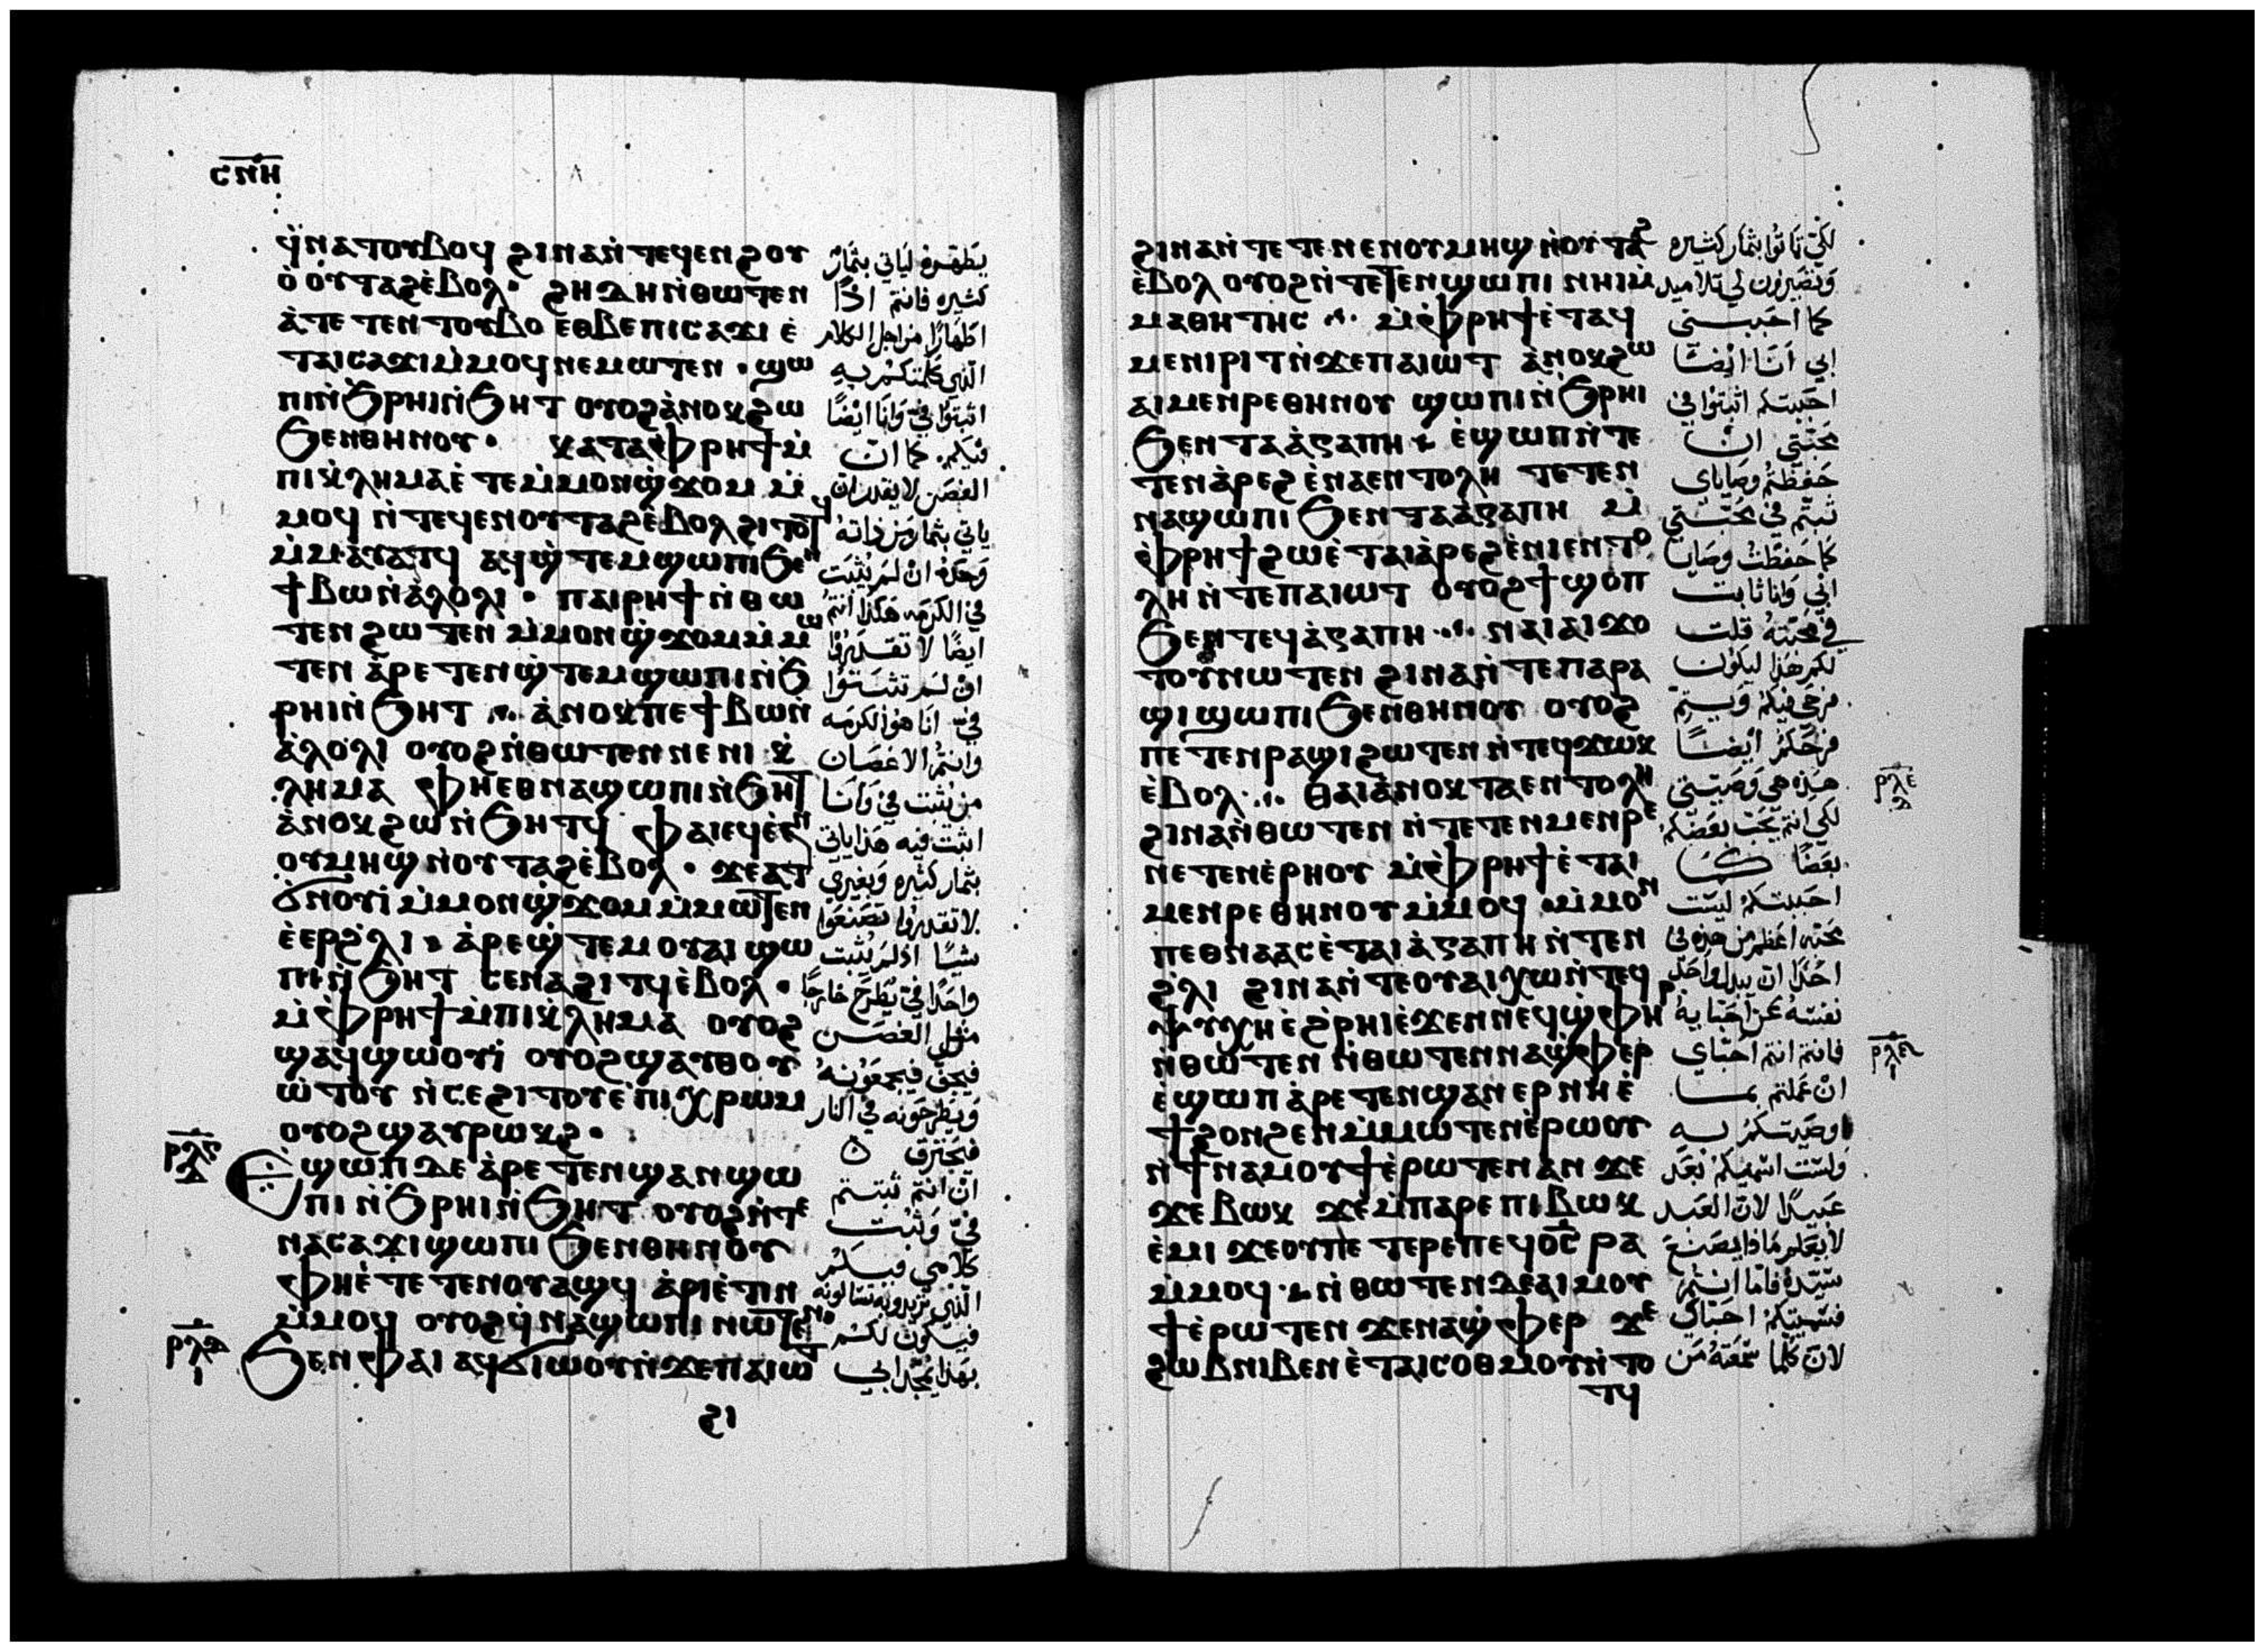 ⲥⲛⲏ
ϥ̀ⲛⲁⲧⲟⲩⲃⲟϥ ϩⲓⲛⲁⲛ̀ⲧⲉϥⲉⲛϩⲟⲩ
ⲟ̀ ⲟⲩⲧⲁϩⲉ̀ⲃⲟⲗ· ϩⲏⲇⲏ ⲛ̀ⲑⲱⲧⲉⲛ
ⲁ̀ⲧⲉⲧⲉⲛⲧⲟⲩⲃⲟ ⲉⲑⲃⲉⲡⲓⲥⲁϫⲓ ⲉ̀
ⲧⲁⲓⲥⲁϫⲓⲙ̀ⲙⲟϥⲛⲉⲙⲱⲧⲉⲛ· ϣⲱ
ⲡⲓⲛ̀ϧⲣⲏⲓⲛ̀ϧⲏⲧ ⲟⲩⲟϩⲁ̀ⲛⲟⲕϩⲱ
ϧⲉⲛⲑⲏⲛⲟⲩ· ⲕⲁⲧⲁⲫⲣⲏϯⲙ̀
ⲡⲓⲕ̀ⲗⲏⲙⲁⲉ̀ⲧⲉⲙ̀ⲙⲟⲛϣ̀ϫⲟⲙ ⲙ̀
ⲙⲟϥ ⲛ̀ⲧⲉϥⲉⲛⲟⲩⲧⲁϩⲉ̀ⲃⲟⲗϩⲓⲧⲟⲧϥ
ⲙ̀ⲙⲁⲩⲁⲧϥ ⲁϥϣ̀ⲧⲉⲙϣⲱⲡⲓϧⲉⲛ
ϯⲃⲱⲛ̀ⲁ̀ⲗⲟⲗⲓ· ⲡⲁⲓⲣⲏϯ ⲛ̀ⲑⲱ
ⲧⲉⲛ ϩⲱⲧⲉⲛ ⲙ̀ⲙⲟⲛϣ̀ϫⲟⲙⲙ̀ⲙⲱ
ⲧⲉⲛ ⲁ̀ⲣⲉⲧⲉⲛϣ̀ⲧⲉⲙϣⲱⲡⲓⲛ̀ϧ
ⲣⲏⲓⲛ̀ϧⲏⲧ ⁘ ⲁ̀ⲛⲟⲕⲡⲉϯⲃⲱⲛ̀
ⲁ̀ⲗⲟⲗⲓ ⲟⲩⲟϩⲛ̀ⲑⲱⲧⲉⲛ ⲛⲉ ⲛⲓⲕ̀
ⲗⲏⲙⲁ ⲫⲏⲉⲑⲛⲁϣⲱⲡⲓⲛ̀ϧⲏⲧ
ⲁ̀ⲛⲟⲕ ϩⲱ ⲛ̀ϧⲏⲧϥ ⲫⲁⲓⲉϥⲉ̀ⲉⲛ
ⲟⲩⲙⲏϣ ⲛ̀ⲟⲩⲧⲁϩⲉ̀ⲃⲟⲗ· ϫⲉⲁⲧ
ϭⲛⲟⲩⲓ̀ ⲙ̀ⲙⲟⲛϣ̀ϫⲟⲙ ⲙ̀ⲙⲱⲧⲉⲛ
ⲉ̀ⲉⲣϩ̀ⲗⲓ· ⲁ̀ⲣⲉϣ̀ⲧⲉⲙⲟⲩⲁⲓ ϣⲱ
ⲡⲓⲛ̀ϧⲏⲧ ⲥⲉⲛⲁϩⲓⲧϥⲉ̀ⲃⲟⲗ·
ⲙ̀ⲫⲣⲏϯⲙ̀ⲡⲓⲕ̀ⲗⲏⲙⲁ ⲟⲩⲟϩ
ϣⲁϥϣⲱⲟⲩⲓ̀ ⲟⲩⲟϩϣⲁⲩⲑⲟⲩ
ⲱ̀ⲧⲟⲩ ⲛ̀ⲥⲉϩⲓⲧⲟⲩⲉ̀ⲡⲓⲭⲣⲱⲙ
ⲟⲩⲟϩϣⲁⲩⲣⲱⲕϩ·
ⲣⲗⲅ
ⲇ
Ⲉϣⲱⲡ ⲇⲉ ⲁ̀ⲣⲉⲧⲉⲛϣⲁⲛϣⲱ
ⲡⲓ ⲛ̀ϧⲣⲏⲓⲛ̀ϧⲏⲧ ⲟⲩⲟϩⲛ̀ⲧⲉ
ⲛⲁⲥⲁϫⲓϣⲱⲡⲓ ϧⲉⲛⲑⲏⲛⲟⲩ
ⲫⲏⲉ̀ⲧⲉⲧⲉⲛⲟⲩⲁϣϥ ⲁ̀ⲣⲓⲉ̀ⲧⲓⲛ
ⲙ̀ⲙⲟϥ ⲟⲩⲟϩϥ̀ⲛⲁϣⲱⲡⲓ ⲛⲱⲧⲉⲛ
ⲣⲗⲇ
ⲓ
ϧⲉⲛ ⲫⲁⲓ ⲁϥϭⲓⲱⲟⲩⲛ̀ϫⲉⲡⲁⲓⲱⲧ
ϩⲓ
يطهره لياتي بثمار
كثيره فانتم اذًا
اطهارًا من اجل الكلام
الذي كلمتكم به
اثبتوا فيّ وانا ايضًا
فيكم. كما ان
الغصن لا يقدر ان
ياتي بثمار من ذاته
وحده ان لم يثبت
في الكرمه هكذا انتم
ايضًا لا تقدروا
ان لم تثبتوا
فيّ انا هو الكرمه
وانتم الاغصان
من يثبت فيّ وانا
اثبت فيه هذا ياتي
بثمار كثيره وبغيري
لا تقدروا تصنعوا
شيًا اذ لم يثبت
واحدًا فيّ يطرح خارجًا
مثل الغصن
فيجف فيجمعونه
ويطرحونه في النار
فيحترق ٥
ان انتم ثبتتم
فيّ وثبت
كلامي فيكم
الذي تريدونه تسالونه
فيكون لكم
بهذا يمجد ابي
ϩⲓⲛⲁⲛ̀ⲧⲉⲧⲉⲛⲉⲛⲟⲩⲙⲏϣ ⲛ̀ⲟⲩⲧⲁϩ
ⲉ̀ⲃⲟⲗ ⲟⲩⲟϩⲛ̀ⲧⲉⲧⲉⲛϣⲱⲡⲓ ⲛⲏⲓⲙ̀
ⲙⲁⲑⲏⲧⲏⲥ ⁘ ⲙ̀ⲫⲣⲏϯⲉ̀ⲧⲁϥ
ⲙⲉⲛⲣⲓⲧⲛ̀ϫⲉⲡⲁⲓⲱⲧ ⲁ̀ⲛⲟⲕϩⲱ
ⲁⲓⲙⲉⲛⲣⲉⲑⲏⲛⲟⲩ ϣⲱⲡⲓⲛ̀ϧⲣⲏⲓ
ϧⲉⲛ ⲧⲁⲁ̀ⲅⲁⲡⲏ ⁘ ⲉ̀ϣⲱⲡ ⲛ̀ⲧⲉ
ⲧⲉⲛⲁ̀ⲣⲉϩ ⲉ̀ⲛⲁⲉⲛⲧⲟⲗⲏ ⲧⲉⲧⲉⲛ
ⲛⲁϣⲱⲡⲓ ϧⲉⲛ ⲧⲁⲁ̀ⲅⲁⲡⲏ ⲙ̀
ⲫⲣⲏϯϩⲱⲉ̀ⲧⲁⲓⲁ̀ⲣⲉϩⲉ̀ⲛⲓⲉⲛⲧⲟ
ⲗⲏ ⲛ̀ⲧⲉⲡⲁⲓⲱⲧ ⲟⲩⲟϩϯϣⲟⲡ
ϧⲉⲛⲧⲉϥⲁ̀ⲅⲁⲡⲏ ⁘ ⲛⲁⲓⲁⲓϫⲟ
ⲧⲟⲩⲛⲱⲧⲉⲛ ϩⲓⲛⲁⲛ̀ⲧⲉⲡⲁⲣⲁ
ϣⲓ ϣⲱⲡⲓϧⲉⲛⲑⲏⲛⲟⲩ ⲟⲩⲟϩ
ⲡⲉⲧⲉⲛⲣⲁϣⲓ ϩⲱⲧⲉⲛ ⲛ̀ⲧⲉϥϫⲱⲕ
ⲉ̀ⲃⲟⲗ ⁘ ⲑⲁⲓⲁ̀ⲛⲟⲕ ⲧⲁⲉⲛⲧⲟⲗⲏ
ϩⲓⲛⲁⲛ̀ⲑⲱⲧⲉⲛ ⲛ̀ⲧⲉⲧⲉⲛⲙⲉⲛⲣⲉ
ⲛⲉⲧⲉⲛⲉ̀ⲣⲏⲟⲩ ⲙ̀ⲫⲣⲏϯⲉ̀ⲧⲁⲓ
ⲙⲉⲛⲣⲉⲑⲏⲛⲟⲩ ⲙ̀ⲙⲟϥ ⲙ̀ⲙⲟⲛ
ⲡⲉⲑⲛⲁⲁⲥⲉ̀ⲧⲁⲓⲁ̀ⲅⲁⲡⲏ ⲛ̀ⲧⲉⲛ
ϩ̀ⲗⲓ ϩⲓⲛⲁⲛ̀ⲧⲉⲟⲩⲁⲓ ⲭⲱⲛ̀ⲧⲉϥ
ⲯⲩⲭⲏ ⲉ̀ϩ̀ⲣⲏⲓⲉ̀ϫⲉⲛⲛⲉϥϣ̀ⲫⲏⲣ
ⲛ̀ⲑⲱⲧⲉⲛ ⲛ̀ⲑⲱⲧⲉⲛ ⲛⲁϣ̀ⲫⲉⲣ
ⲉ̀ϣⲱⲡ ⲁ̀ⲣⲉⲧⲉⲛϣⲁⲛⲉⲣ ⲛⲏⲉ̀
ϯϩⲟⲛϩⲉⲛ ⲙ̀ⲙⲱⲧⲉⲛⲉ̀ⲣⲱⲟⲩ
ⲛ̀ϯⲛⲁⲙⲟⲩϯⲉ̀ⲣⲱⲧⲉⲛ ⲁⲛ ϫⲉ
ϫⲉ ⲃⲱⲕ ϫⲉⲙ̀ⲡⲁⲣⲉ ⲡⲓⲃⲱⲕ
ⲉ̀ⲙⲓ ϫⲉⲟⲩⲡⲉⲧⲉⲣⲉⲡⲉϥⲟ̅ⲥ̅ ⲣⲁ
ⲙ̀ⲙⲟϥ ⁘ ⲛ̀ⲑⲱⲧⲉⲛ ⲇⲉⲁⲓⲙⲟⲩ
ϯⲉ̀ⲣⲱⲧⲉⲛ ϫⲉⲛⲁϣ̀ⲫⲉⲣ ϫⲉ
ϩⲱⲃ ⲛⲓⲃⲉⲛ ⲉ̀ⲧⲁⲓⲥⲟⲑⲙⲟⲩⲛ̀ⲧⲟ
ⲧϥ
لكي تاتوا بثمار كثيره
وتصيرون لي تلاميد
كما احببني
ابي انا ايضًا
احببتكم اثبتوا في
محبتي ان
حفظتم وصاياي
ثبتم في محبتي
كما حفظت وصايا
ابي وانا ثابت
في محبته قلت
لكم هذا ليكون
فرحي فيكم ويتم
فرحكم ايضًا
هذه هي وصيتي
لكي انتم يحب بعضكم
بعضًا كما
احببتكم ليست
محبه اعظم من هذه في
احدًا ان يبدل واحد
نفسه عن احبايه
فانتم انتم احباي
ان عملتم بما
اوصيتكم به
ولست اسميكم بعد
عبيدًا لان العبد
لا يعلم ماذا يصنع
سيده فاما انتم
فسميتكم احباي
لان كلما سمعته من
ⲣⲗⲉ
ⲇ
ⲣⲗⲋ
ⲓ